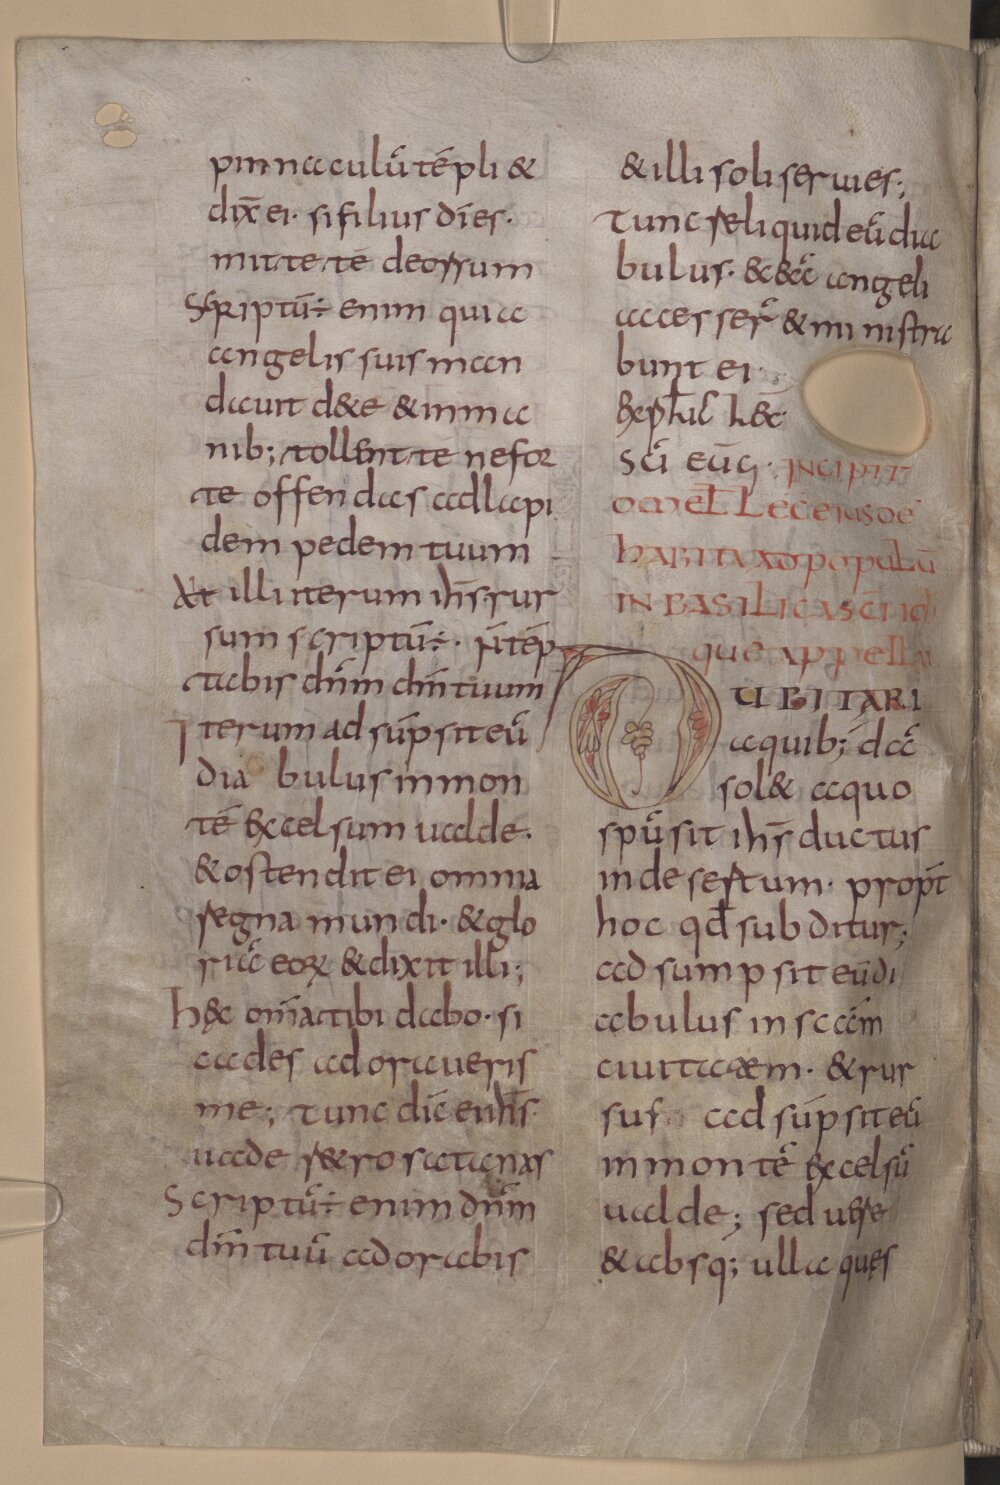 pinnaculū tēpli &
dix̄ ei. si filius dī es.
mitte te deorsum
Scriptū ÷ enim quia
angelis suis man
dauit d&e & in ma
nib; tollent te ne for
te offendas ad lapi
dem pedem tuum
Ait illi iterum ih̄s rur
sum scriptū ÷. n̄ tēp
tabis dn̄m dm̄ tuum
Iterum adsūpsit eū
dia bulus in mon
tē excelsum ualde.
& ostendit ei omnia
regna mundi. & glo
riā eoꝝ & dixit illi;
hęc om̄a tibi dabo. si
cades adoraueris
me; tunc dic̄ ei ih̄s.
uade retro satanas
Scriptū ÷ enim dn̄m
dm̄ tuū adorabis
& illi soli seruies;
Tunc reliquid eū dia
bulus. & ecce angeli
accesser̄ & ministra
bunt ei.
Expl̄ ł hec
sci euḡ. INCIPIT
omel̄ Lec eiusde
HABITA AD populū
IN BASILICA SC̄I
que Appella
DUBITARI
a quib; dā
sol& a quo
sp̄u sit ih̄s ductus
in desertum. prop̄t
hoc qd̄ subditur;
adsumpsit eū di
abulus in sc̄ām
ciuitatem. & rur
sus adsūpsit eū
in montē excelsū
ualde; sed uere
& absq; ulla ques